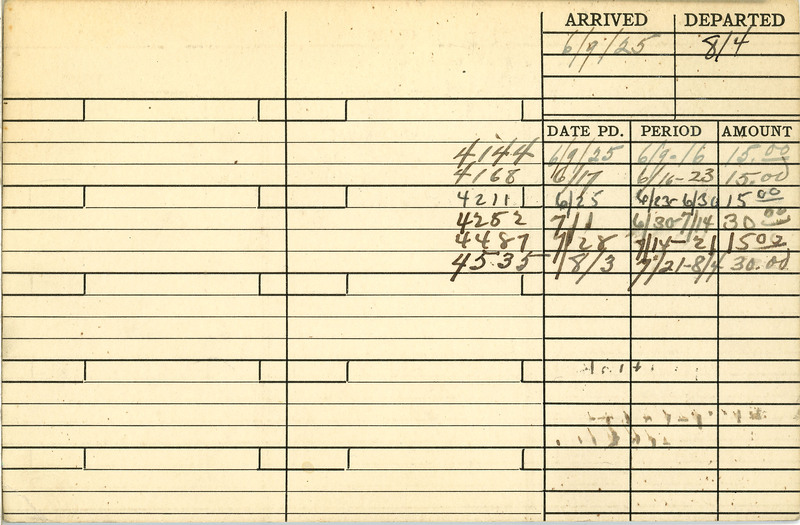 ARRIVED DEPARTED
6/9/25 8/4
DATE PD. PERIOD AMOUNT
4144 6/9/25 6/9-16 15.00
4168 6/17 6/16-23 15.00
4211 6/25 6/23-6/30 15 00
4252 7/1 6/30 7/14 30 00
4487 7/28 7/14-21 15 00
4535 8/3 7/21-8/4 30.00